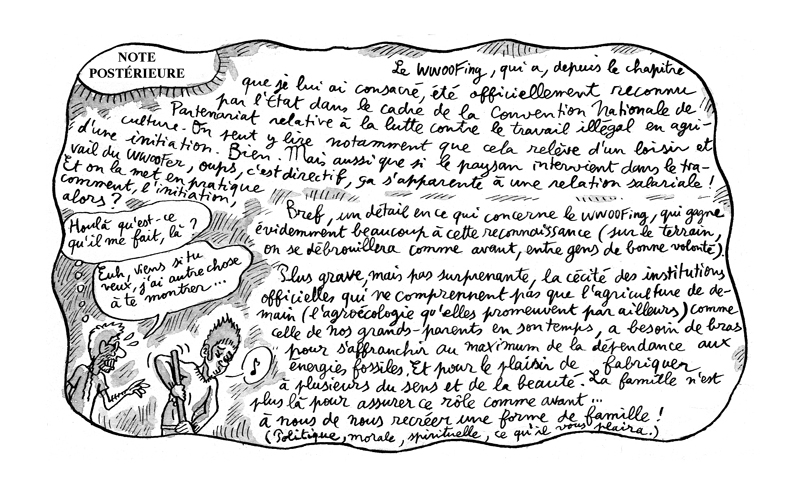 NOTE
POSTÉRIEURE
Le WWOOFing, qui a, depuis le chapitre
que je lui ai consacré, été officiellement reconnu
par l'État dans le cadre de la Convention Nationale de
Partenariat relative à la lutte contre le travail illégal en agri-
culture. On peut y lire notamment que cela relève d'un loisir et
d'une initiation. Bien. Mais aussi que si le paysan intervient dans le tra-
vail du WWOOFer, oups, c'est directif, ça s'apparente à une relation salariale !
Et on la met en pratique
comment, l'initiation,
alors ?
Houlà qu'est-ce
qu'il me fait, là ?
Euh, viens si tu
veux, j'ai autre chose
à te montrer...
♪
Bref, un détail en ce qui concerne le WWOOFing, qui gagne
évidemment beaucoup à cette reconnaissance (sur le terrain,
on se débrouillera comme avant, entre gens de bonne volonté).
Plus grave, mais pas surprenante, la cécité des institutions
officielles qui ne comprennent pas que l'agriculture de de-
main (l'agroécologie qu'elles promeuvent par ailleurs) comme
celle de nos grands-parents en son temps, a besoin de bras
pour s'affranchir au maximum de la dépendance aux
énergies fossiles. Et pour le plaisir de fabriquer
à plusieurs du sens et de la beauté. La famille n'est
plus là pour assurer ce rôle comme avant...
à nous de nous recréer une forme de famille !
(Politique, morale, spirituelle, ce qu'il vous plaira.)